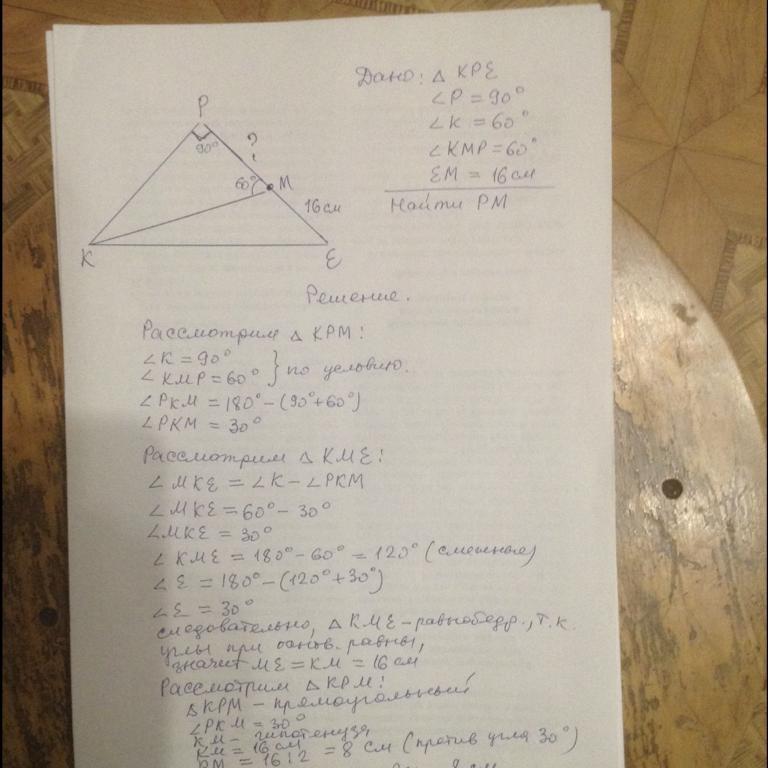 Дано: △ КРЕ
∠P = 90°
∠K = 60°
∠KMP = 60°
EM = 16 см
Найти PM
P
90°
?
60°
M
16 см
K
E
Решение.
Рассмотрим △ KPM:
∠K = 90°
∠KMP = 60° } по условию.
∠PKM = 180° - (90° + 60°)
∠PKM = 30°
Рассмотрим △ KME:
∠MKE = ∠K - ∠PKM
∠MKE = 60° - 30°
∠MKE = 30°
∠KME = 180° - 60° = 120° (смежные)
∠E = 180° - (120° + 30°)
∠E = 30°
следовательно, △ KME - равнобедр., т.к.
углы при основ. равны,
значит ME = KM = 16 см
Рассмотрим △ KPM:
△KPM - прямоугольный
∠PKM = 30°
KM - гипотенуза
KM = 16 см
PM = 16:2 = 8 см (против угла 30°)
8 см